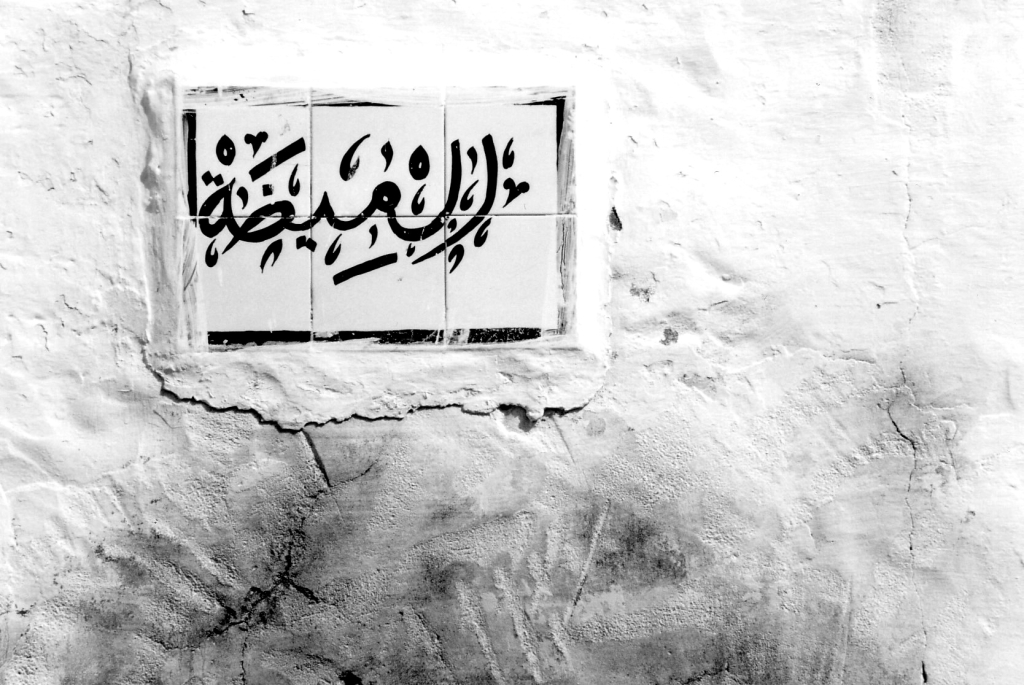 الْمِيضَةْ